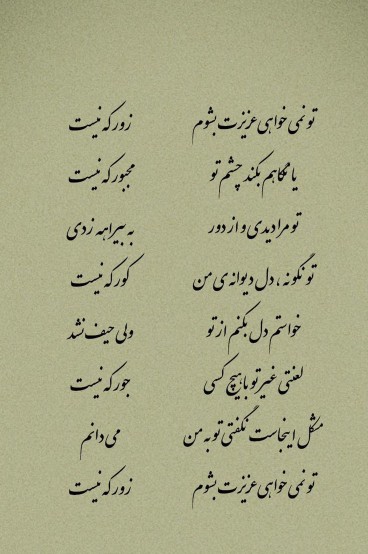 تو نمی خواهی عزیزت بشوم زور که نیست
یا نگاهم بکند چشم تو مجبور که نیست
تو مرا دیدی و از دور به بیراهه زدی
تو نگو نه ، دل دیوانه ی من کور که نیست
خواستم دل بکنم از تو ولی حیف نشد
لعنتی غیر تو با هیچ کسی جور که نیست
مشکل اینجاست نگفتی تو به من می دانم
تو نمی خواهی عزیزت بشوم زور که نیست